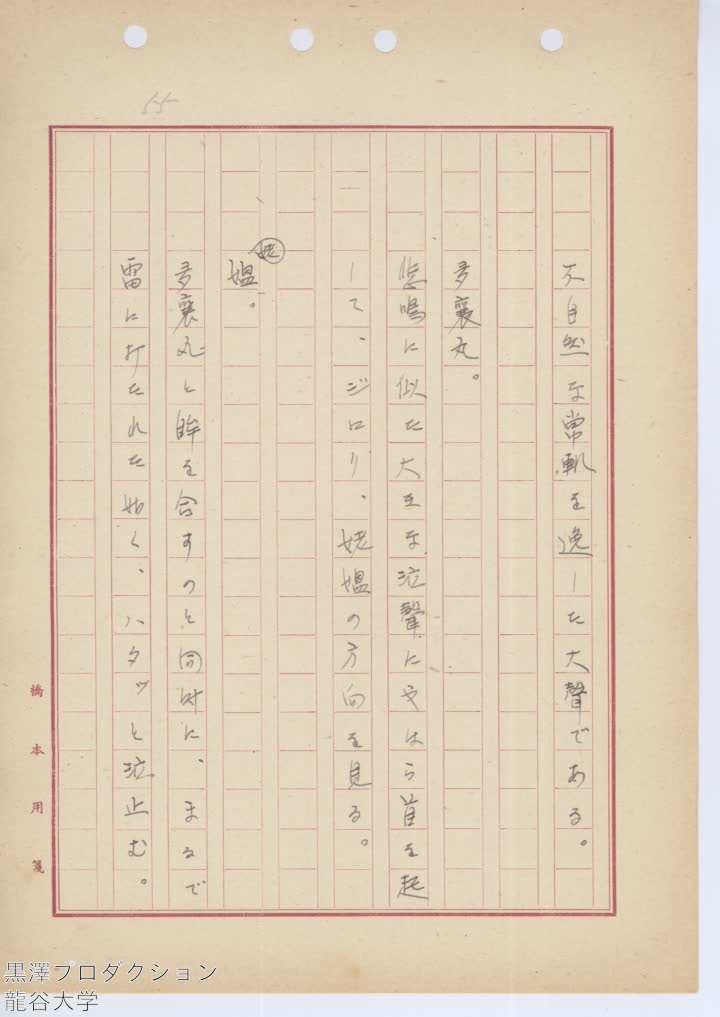 55
不自然な常軌を逸した大聲である。
多襄丸。
悲鳴に似た大きな泣聲にやはら首を起
して、ジロリ、姥媼の方向を見る。
姥媼。
多襄丸と眸を合すのと同時に、まるで
雷に打たれた如く、ハタッと泣止む。
橋本用箋
黒澤プロダクション
龍谷大学